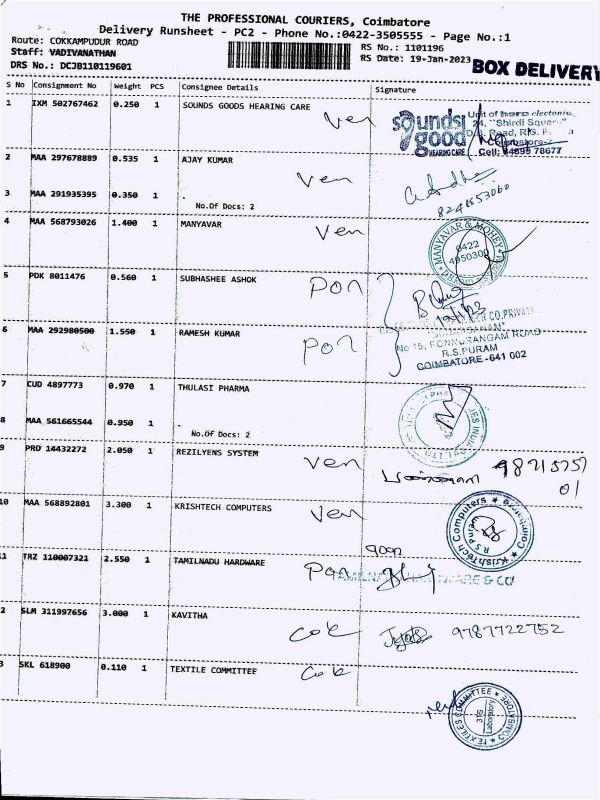 THE PROFESSIONAL COURIERS, Coimbatore
Delivery Runsheet - PC2 - Phone No.:0422-3505555 - Page No.:1
Route: COKKAMPUDUR ROAD
Staff: VADIVANATHAN
DRS No.: DCJB110119601
RS No.: 1101196
RS Date: 19-Jan-2023
BOX DELIVERY
S No Consignment No Weight PCS Consignee Details Signature
1 IXM 502767462 0.250 1 SOUNDS GOODS HEARING CARE Ven
sounds good
HEARING CARE
Unit of
24, "Shirdi Square"
D.B. Road, R.S. P.
Coimbatore-2
Cell: 78677
2 MAA 297678889 0.535 1 AJAY KUMAR Ven
3 MAA 291935395 0.350 1 .
No.Of Docs: 2
4 MAA 568793026 1.400 1 MANYAVAR Ven
MANYAVAR & MOHEY
0422
4950300
5 PDK 8011476 0.560 1 SUBHASHEE ASHOK Pon
19/1/23
CO.PRIVATE
No 15, PONNURANGAM ROAD
R.S.PURAM
COIMBATORE-641 002
6 MAA 292980500 1.550 1 RAMESH KUMAR Pon
7 CUD 4897773 0.970 1 THULASI PHARMA
8 MAA 561665544 0.950 1 .
No.Of Docs: 2
9 PRO 14432272 2.050 1 REZILYENS SYSTEM Ven
10 MAA 568892801 3.300 1 KRISHTECH COMPUTERS Ven
KrishTech Computers
R S Puram
11 TRZ 110007321 2.550 1 TAMILNADU HARDWARE Pon
TAMILNADU HARDWARE & CO
2 SLM 311997656 3.000 1 KAVITHA Cok 9787722752
3 SKL 618900 0.110 1 TEXTILE COMMITTEE Cok
TEXTILES COMMITTEE
Laboratory
COIMBATORE